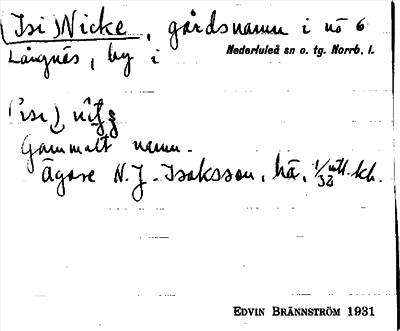 (Isi) Nicke, gårdsnamn i nō 6
Långnäs, by i Nederluleå sn o. tg. Norrb. l.
Gammalt namn.
Ägare N. J. Isaksson, hä, 1/32 mtl. kh.
EDVIN BRÄNNSTRÖM 1931